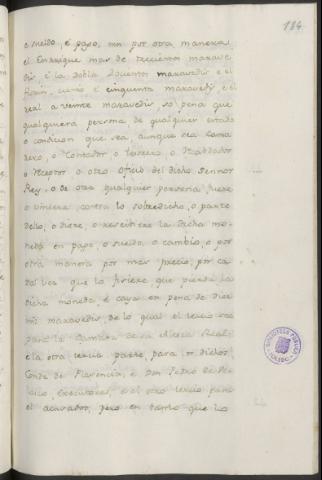 184
o sueldo, é pago, nin por otra manera
el Enrrique mas de trecientos marave-
dis, é la dobla docientos maravedis é el
florin, ciento é cinquenta maravedis, é el
real a veinte maravedis, so pena que
qualquiera persona de qualquier estado
o condicion que sea, aunque sea Camarero,
o Contador o Tesorero o Recabdador
o Receptor o otro Oficial del dicho Sennor
Rey, o de otra qualquier persona, fuere
o viniere contra lo sobredicho, o parte
dello, o diere, o rescibiere la dicha mo-
neda en pago, o sueldo, o cambio, o por
otra manera por mas precio, por ca-
da vez que lo ficiere que pierda la
dicha moneda, é caya en pena de diez
mil maravedis, de lo qual el tercio sea
para la Camara de su Alteza Real:
é la otra tercia parte para los dichos
Conde de Plasencia, é Don Pedro de
Executores, é el otro tercio para
el acusador, pero en tanto que los
BIBLIOTECA PUBLICA
TOLEDO